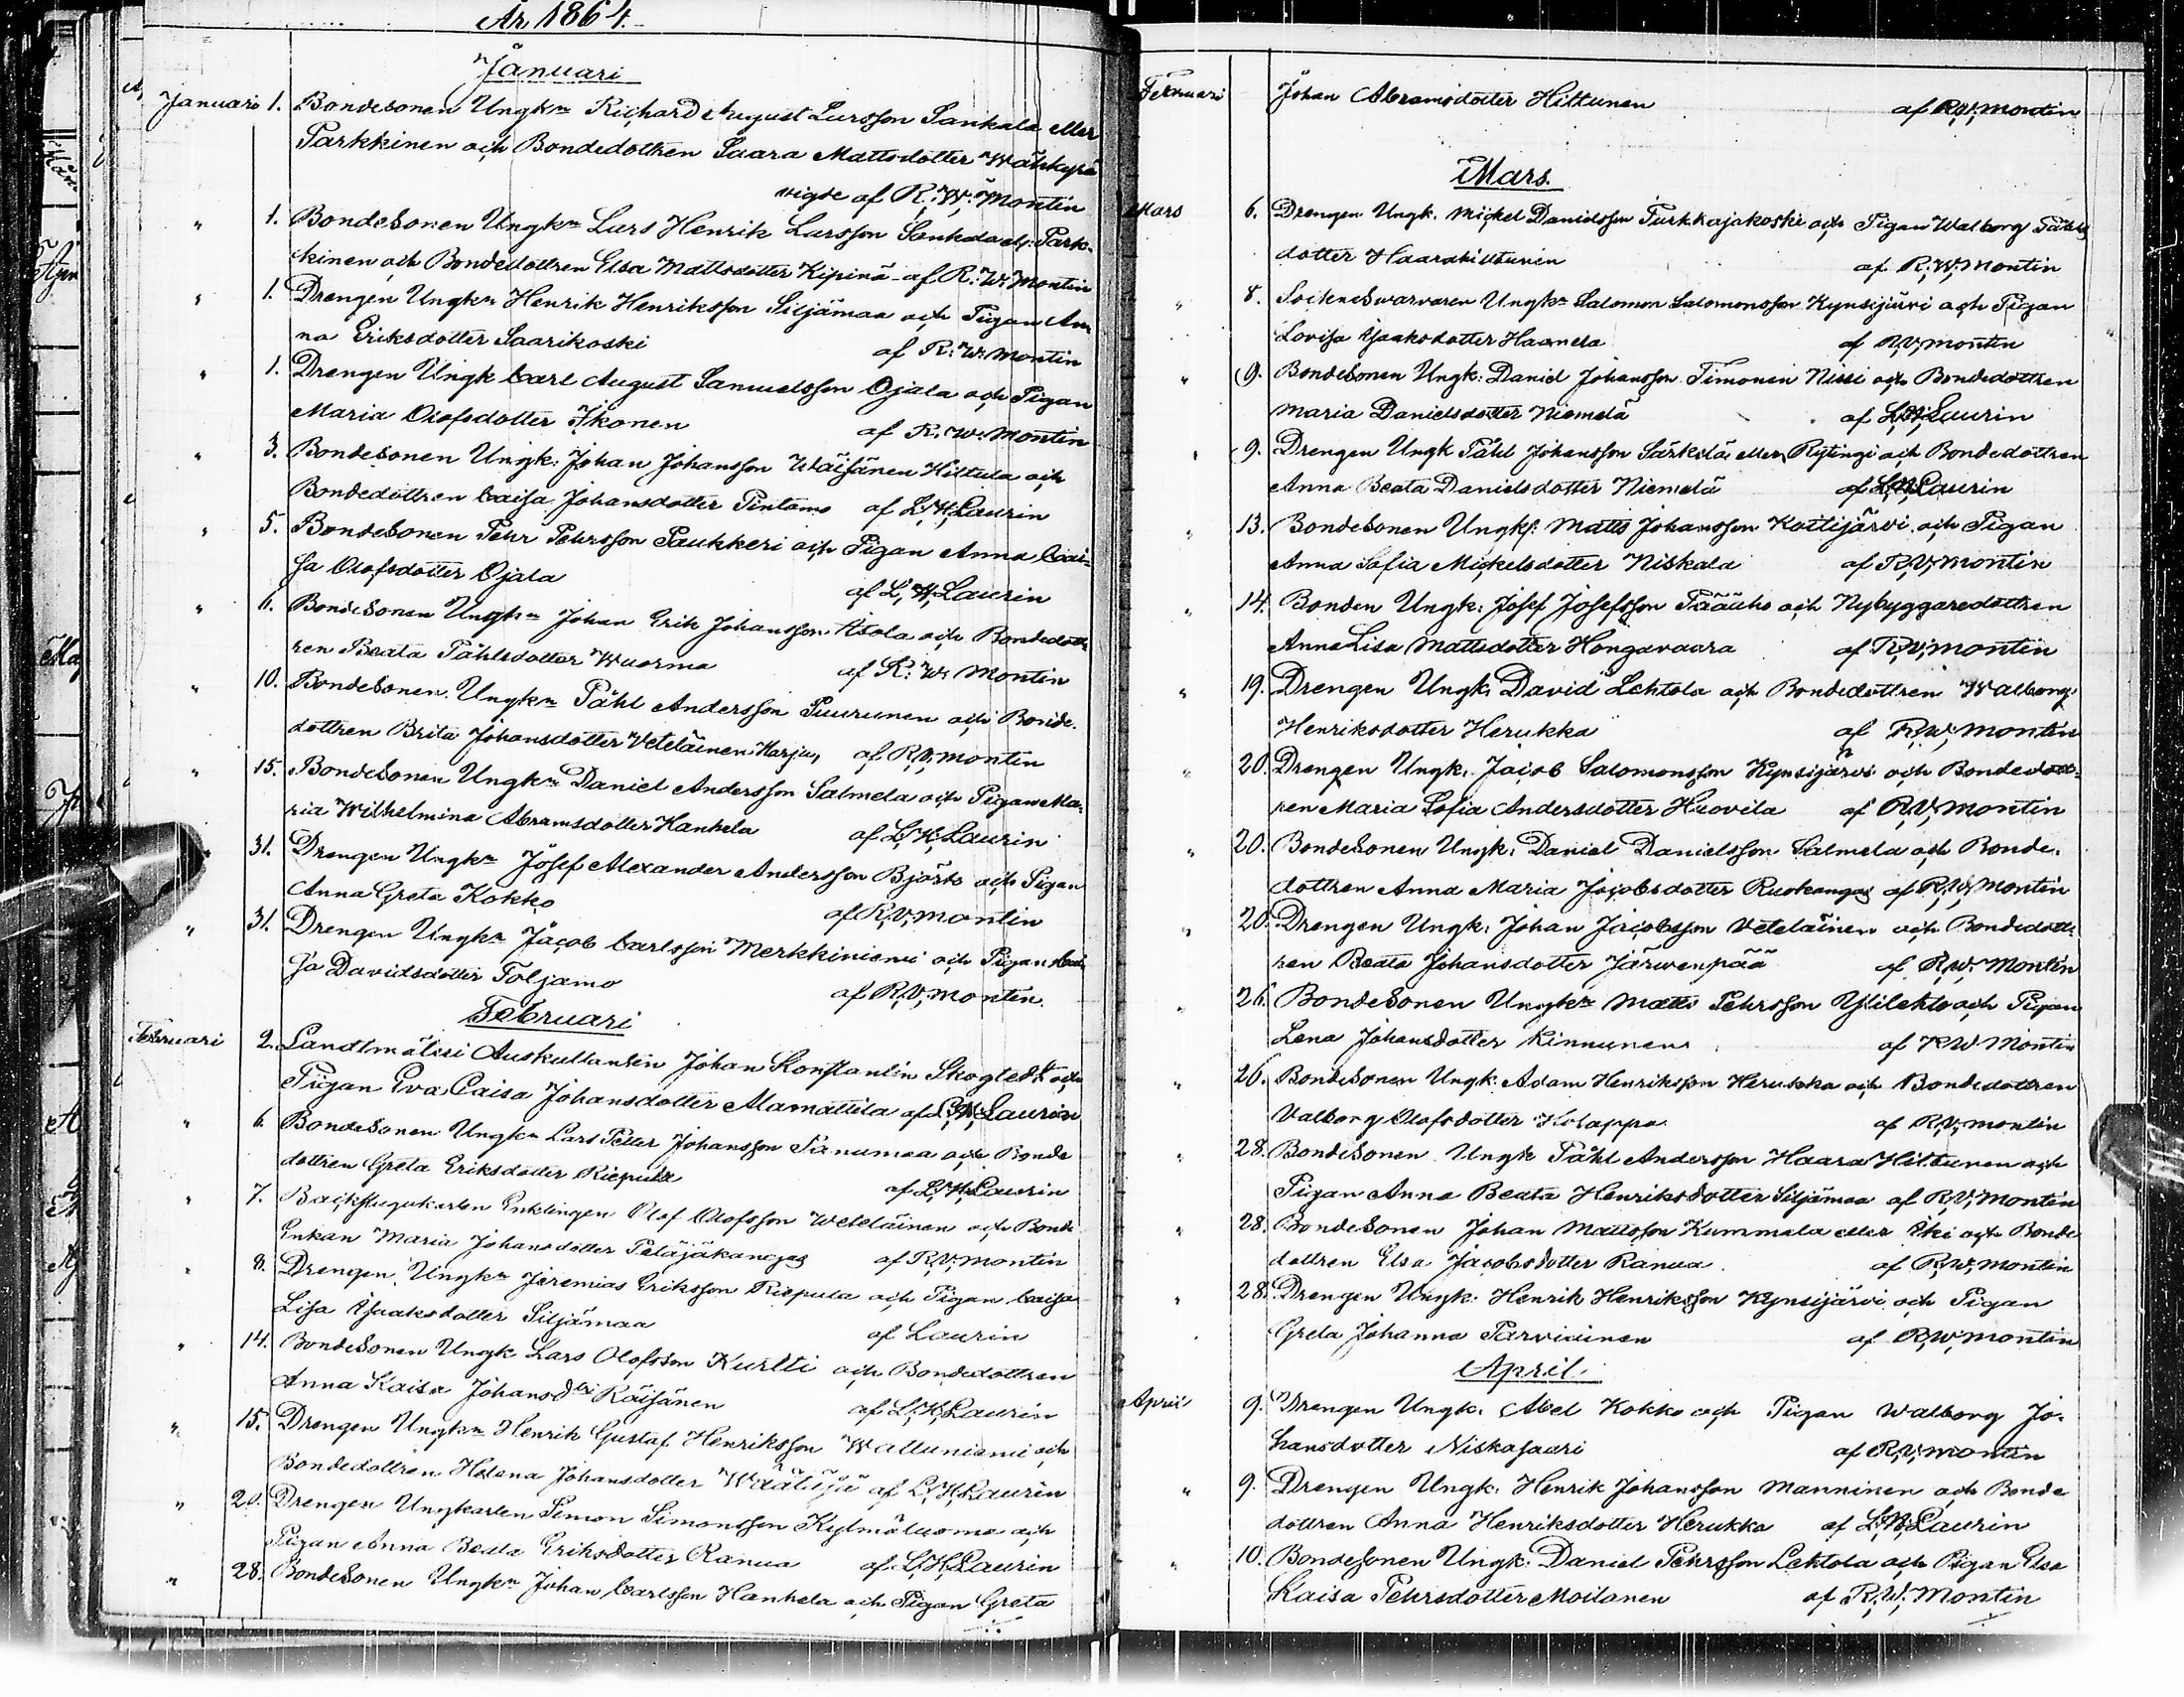 År 1864.
Januari
Januari 1. Bondesonen Ungkn Richard August Larsson Sankala eller
Parkkinen och Bondedottren Saara Mattsdotter Wähkyrä
vigde af R. W. Montin
" 1. Bondesonen Ungkn Lars Henrik Larsson Sankala el. Park-
kinen och Bondedottren Elsa Mattsdotter Kipinä af R. W. Montin
" 1. Drengen Ungkn Henrik Henriksson Siljämaa och Pigan An-
na Eriksdotter Saarikoski af R. W. Montin
" 1. Drengen Ungk Carl August Samuelsson Ojala och Pigan
Maria Olofsdotter Ikonen af R. W. Montin
" 3. Bondesonen Ungk. Johan Johansson Wäisänen Hiltula och
Bondedottren Caisa Johansdotter Pintamo af L. H. Laurin
" 5. Bondesonen Pehr Pehrsson Paukkeri och Pigan Anna Cai-
sa Olofsdotter Ojala af L. H. Laurin
" 6. Bondesonen Ungkn Johan Erik Johansson Asola och Bondedott-
ren Beata Påhlsdotter Wuorma af R. W. Montin
" 10. Bondesonen Ungkn Påhl Andersson Puurunen och Bonde-
dottren Brita Johansdotter Veteläinen Harju, af R. W. Montin
" 15. Bondesonen Ungkn Daniel Andersson Salmela och Pigan Ma-
ria Wilhelmina Abramsdotter Hanhela af L. H. Laurin
31. Drengen Ungkn Josef Alexander Andersson Björk och Pigan
Anna Greta Kokko af R. W. Montin
" 31. Drengen Ungkn Jacob Carlsson Merkkiniemi och Pigan Cai-
sa Davidsdotter Toljamo af R. W. Montin.
Februari
Februari 2. Landtmäteri Auskultanten Johan Konstantin Skogstedt och
Pigan Eva Caisa Johansdotter Alamattila af L. H. Laurin
" 6. Bondesonen Ungkn Lars Petter Johansson Panumaa och Bonde
dottren Greta Eriksdotter Riepula af L. H. Laurin
" 7. Backstugukarlen Enklingen Olof Olofsson Weteläinen och Bonde
Enkan Maria Johansdotter Petäjäkangas af R. W. Montin
" 8. Drengen Ungkn Jeremias Eriksson Riepula och Pigan Caisa
Lisa Isaaksdotter Siljämaa af Laurin
" 14. Bondesonen Ungk Lars Olofsson Kurtti och Bondedottren
Anna Kaisa Johansdtr Räisänen af L. H. Laurin
" 15. Drengen Ungkn Henrik Gustaf Henriksson Walluniemi och
Bondedottren Helena Johansdotter af L. H. Laurin
" 20. Drengen Ungkarlen Simon Simonsson Kylmäluoma och
Pigan Anna Beata Eriksdotter Ranua af L. H. Laurin
" 28. Bondesonen Ungkn Johan Carlsson Hanhela och Pigan Greta
Februari Johan Abramsdotter Hiltunen af R. W. Montin
Mars.
Mars 6. Drengen Ungk. Mickel Danielsson Turkkajakoski och Pigan Walborg Påhls
dotter Haarahiltunen af R. W. Montin
" 8. Sockneswarvaren Ungkn Salomon Salomonsson Kynsijärvi och Pigan
Lovisa Isaaksdotter Haamela af R. W. Montin
" 9. Bondesonen Ungk. Daniel Johansson Timonen Nissi och Bondedottren
Maria Danielsdotter Niemelä af L. H. Laurin
" 9. Drengen Ungk Påhl Johansson Särkelä eller Rytingi och Bondedottren
Anna Beata Danielsdotter Niemelä af L. H. Laurin
" 13. Bondesonen Ungk. Matts Johansson Koitijärvi och Pigan
Anna Sofia Mickelsdotter Niskala af R. W. Montin
" 14. Bonden Ungk. Josef Josefsson Pääaho och Nybyggaredottren
Anna Lisa Mattsdotter Hongavaara af R. W. Montin
" 19. Drengen Ungk. David Lehtola och Bondedottren Walborg
Henriksdotter Herukka af R. W. Montin
" 20. Drengen Ungk. Jacob Salomonsson Kynsijärvi och Bondedott-
ren Maria Sofia Andersdotter Huovila af R. W. Montin
" 20. Bondesonen Ungk. Daniel Danielsson Salmela och Bonde-
dottren Anna Maria Jacobsdotter Ruokangas af R. W. Montin
" 20. Drengen Ungk. Johan Jacobsson Veteläinen och Bondedott-
ren Beata Johansdotter Järwenpää af R. W. Montin
" 26. Bondesonen Ungkn Matts Pehrsson Ylilehto och Pigan
Lena Johansdotter Kinnunen af R W Montin
" 26. Bondesonen Ungk. Adam Henriksson Herukka och Bondedottren
Valborg Olofsdotter Holappa af R. W. Montin
" 28. Bondesonen Ungk Påhl Andersson Haara Hiltunen och
Pigan Anna Beata Henriksdotter Siljämaa af R. W. Montin
" 28. Bondesonen Johan Mattsson Kummala eller Iki och Bonde
dottren Elsa Jacobsdotter Ranua af R. W. Montin
" 28. Drengen Ungk. Henrik Henriksson Kynsijärvi och Pigan
Greta Johanna Parviainen af R. W. Montin
April.
April 9. Drengen Ungk. Abel Kokko och Pigan Walborg Jo-
hansdotter Niskasaari af R. W. Montin
" 9. Drengen Ungk. Henrik Johansson Manninen och Bonde
dottren Anna Henriksdotter Herukka af L. H. Laurin
" 10. Bondesonen Ungk. Daniel Pehrsson Lehtola och Pigan Elsa
Kaisa Pehrsdotter Moilanen af R. W. Montin